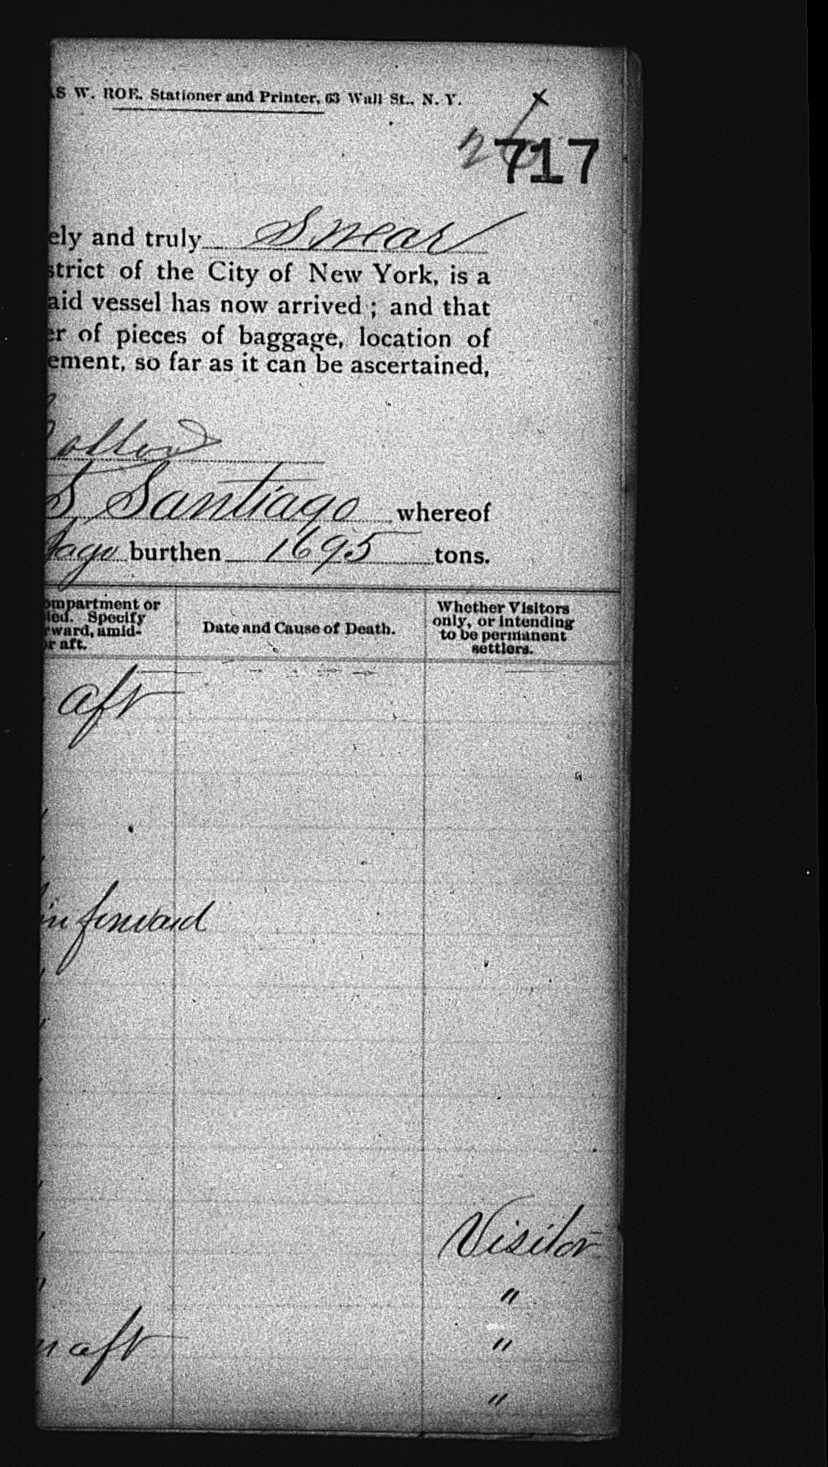 S W. ROE, Stationer and Printer, 63 Wall St., N. Y.
x
717
ely and truly Swear
strict of the City of New York, is a
aid vessel has now arrived ; and that
er of pieces of baggage, location of
ement, so far as it can be ascertained,
S Santiago whereof
burthen 1695 tons.
ompartment or
ied. Specify
rward, amid-
or aft.
Date and Cause of Death.
Whether Visitors
only, or intending
to be permanent
settlers.
aft
in forward
Visitor
"
n aft "
"